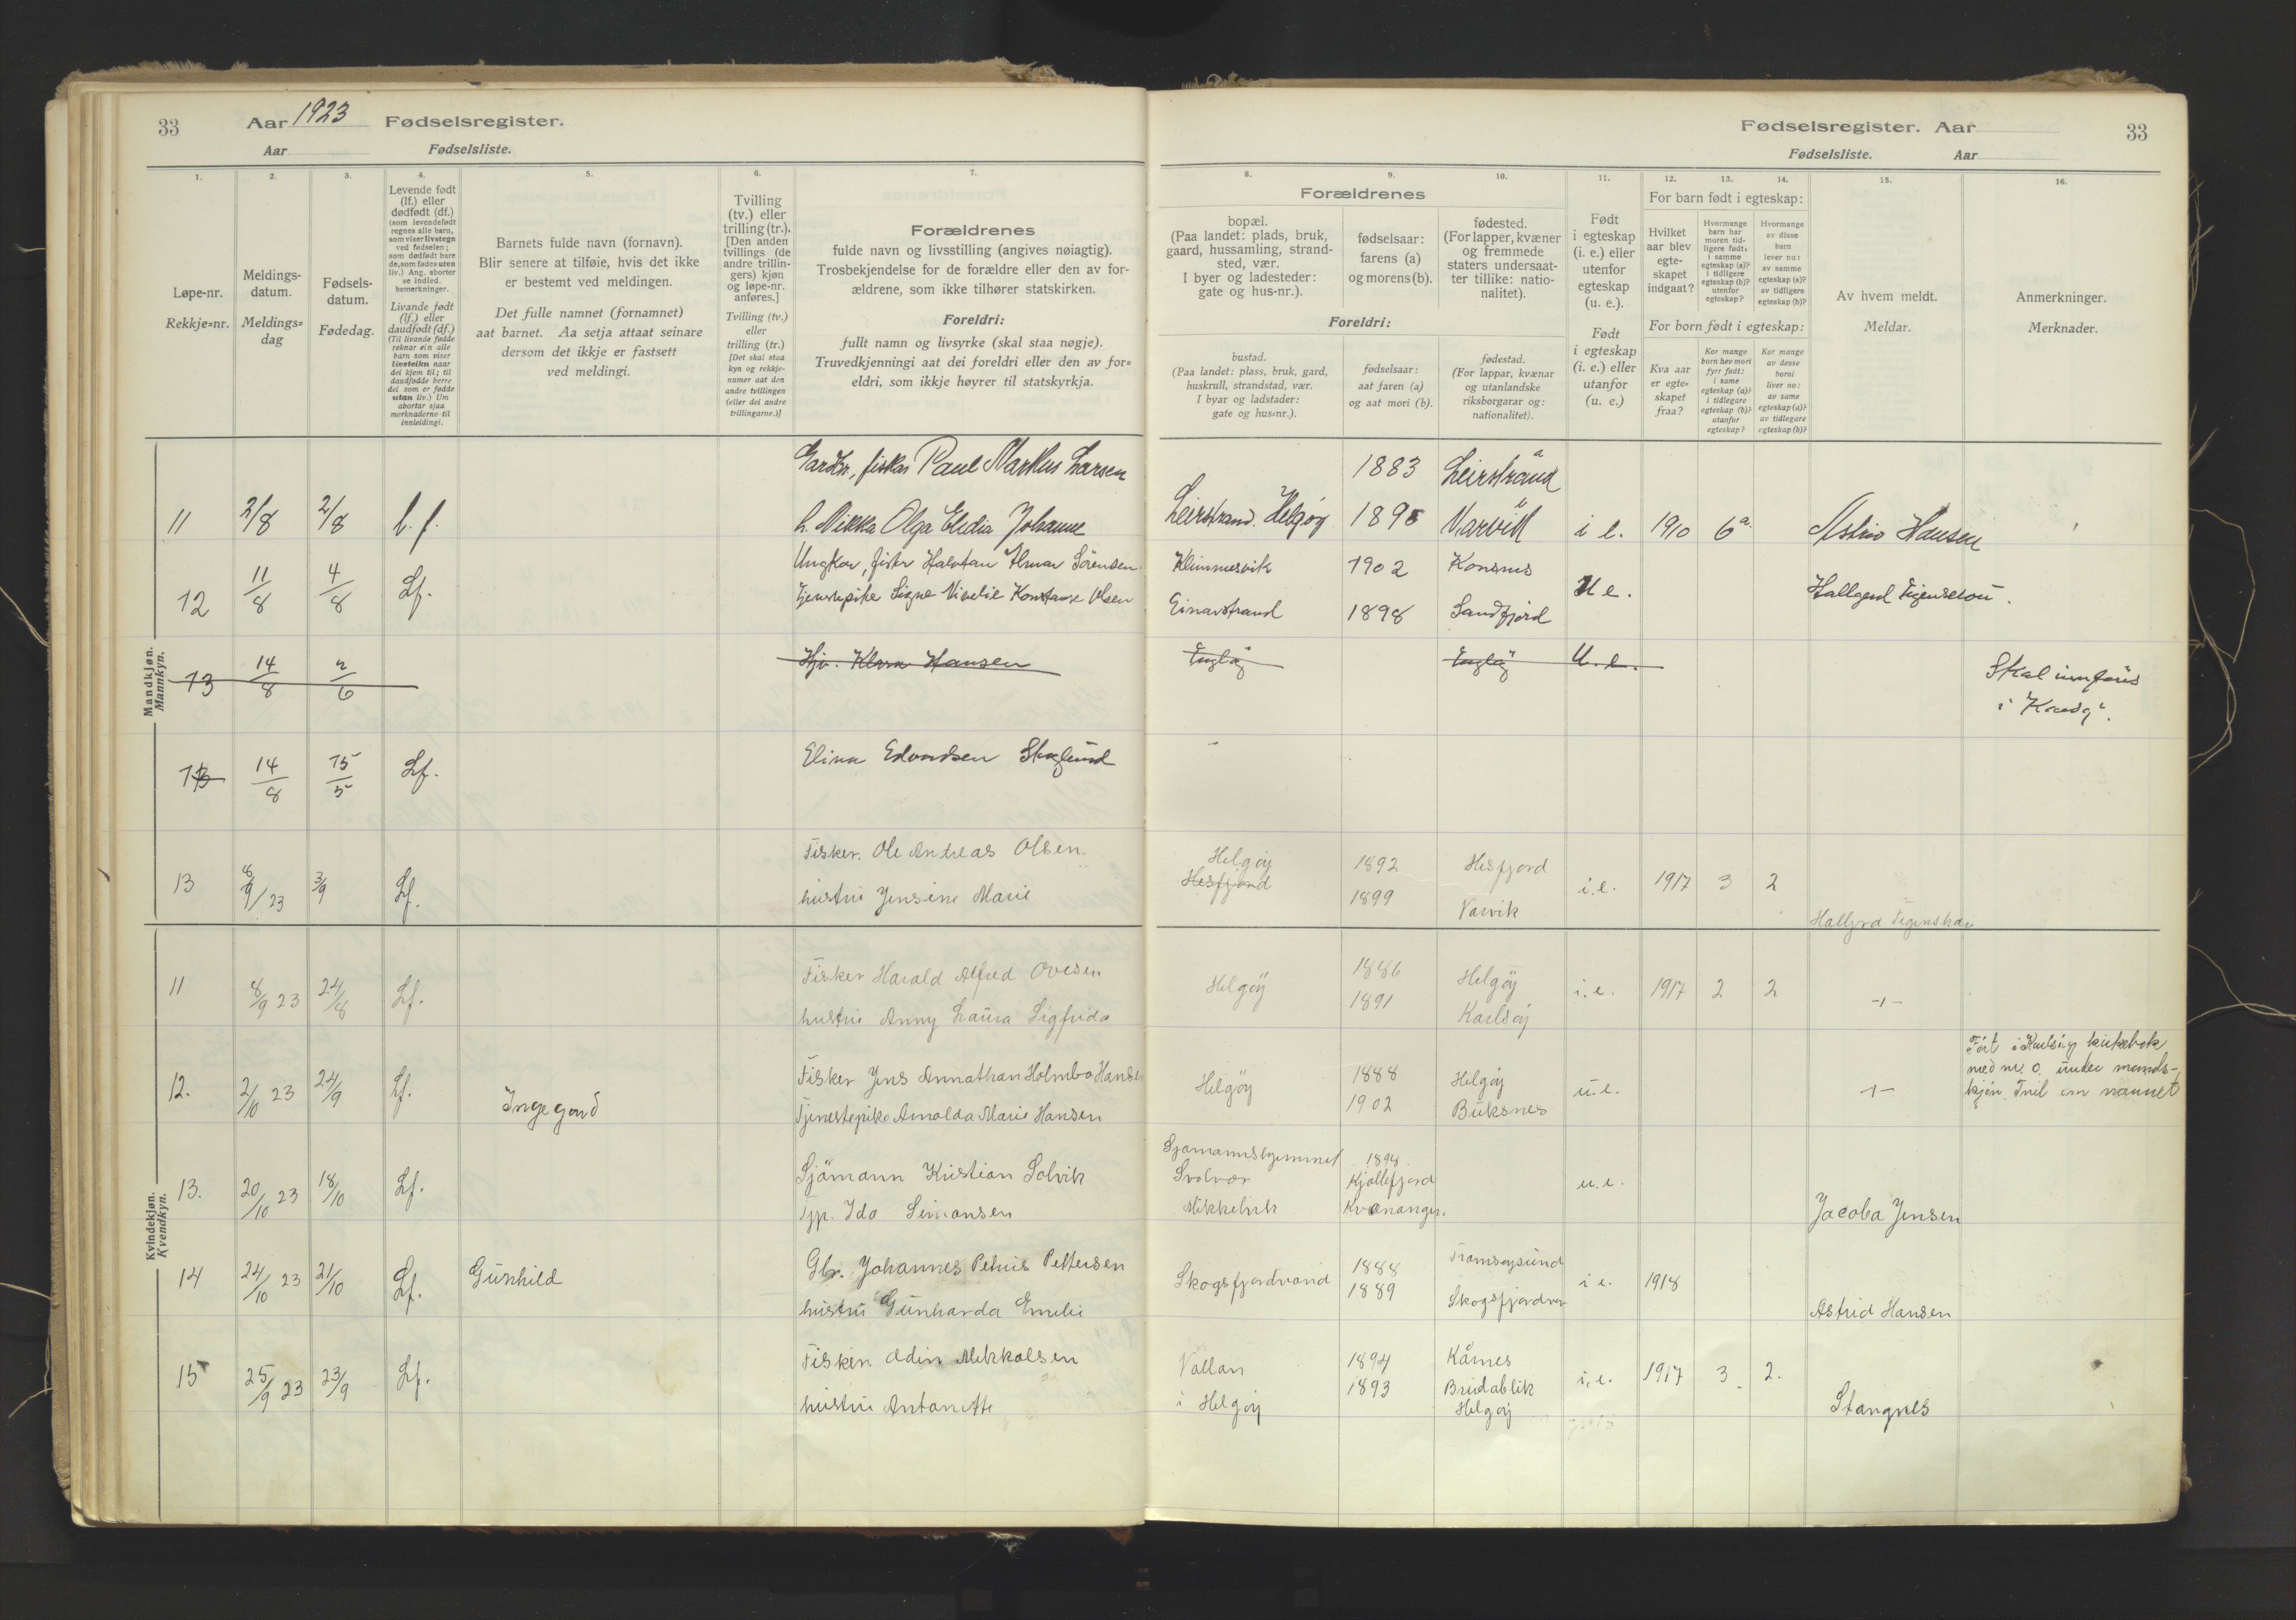 33 Aar 1923 Fødselsregister.
Aar Fødselsliste.
Fødselsregister. Aar 33
Fødselsliste. Aar
1. 2. 3. 4. 5. 6. 7.
Løpe-nr.
Rekkje=nr.
Meldings-
datum.
Meldings=
dag
Fødsels-
datum.
Fødedag.
Levende født
(lf.) eller
dødfødt (df.)
(som levendefødt
regnes alle barn,
som viser livstegn
ved fødselen;
som dødfødt bare
de, som fødes uten
liv.) Ang. aborter
se indled.
bemerkninger.
Livande født
(lf.) eller
daudfødt (df.)
(Til livande fødde
reknar ein alle
barn som viser
livsteikn naar
dei kjem til; til
daudfødde berre
dei som er fødde
utan liv.) Um
abortar sjaa
merknaderne til
innleidingi.
Barnets fulde navn (fornavn).
Blir senere at tilføie, hvis det ikke
er bestemt ved meldingen.
Det fulle namnet (fornamnet)
aat barnet. Aa setja attaat seinare
dersom det ikkje er fastsett
ved meldingi.
Tvilling
(tv.) eller
trilling (tr.).
[Den anden
tvillings (de
andre trillin-
gers) kjøn
og løpe-nr.
anføres.]
Tvilling (tv.)
eller
trilling (tr.)
[Det skal staa
kyn og rekkje-
numer aat den
andre tvillingen
(eller dei andre
trillingarne.)]
Forældrenes
fulde navn og livsstilling (angives nøiagtig).
Trosbekjendelse for de forældre eller den av for-
ældrene, som ikke tilhører statskirken.
Foreldri:
fullt namn og livsyrke (skal staa nøgje).
Truvedkjenningi aat dei foreldri eller den av for=
eldri, som ikkje høyrer til statskyrkja.
8. 9. 10. 11. 12. 13. 14. 15. 16.
Forældrenes
bopæl.
(Paa landet: plads, bruk,
gaard, hussamling, strand-
sted, vær.
I byer og ladesteder:
gate og hus-nr.).
fødselsaar:
farens (a)
og morens (b).
fødested.
(For lapper, kvæner
og fremmede
staters undersaat-
ter tillike: natio-
nalitet).
Foreldri:
bustad.
(Paa landet: plass, bruk, gard,
huskrull, strandstad, vær.
I byar og ladstader:
gate og hus=nr.).
fødselsaar:
aat faren (a)
og aat mori (b).
fødestad.
(For lappar, kvænar
og utanlandske
riksborgarar og:
nationalitet).
Født
i egteskap
(i. e.) eller
utenfor
egteskap
(u. e.).
Født
i egteskap
(i. e.) eller
utanfor
(u. e.)
For barn født i egteskap:
Hvilket
aar blev
egte-
skapet
indgaat?
Hvormange
barn har
moren tid-
ligere født:
i samme
egteskap (a)?
i tidligere
egteskap (b)?
utenfor
egteskap?
Hvormange
av disse
barn
lever nu:
av samme
egteskap (a)?
av tidligere
egteskap (b)?
For born født i egteskap:
Kva aar
er egte=
skapet
fraa?
Kor mange
born hev mori
fyrr født:
i same
egteskap (a)?
i tidlegare
egteskap (b)?
utanfor
egteskap?
Kor mange
av desse
borni
liver no:
av same
egteskap (a)?
av tidlegare
egteskap (b)?
Av hvem meldt.
Meldar.
Anmerkninger.
Merknader.
Mandkjøn.
Mannkyn.
Gardbr., fisker Paul Markus Larsen 1883 Leirstrand
11 2/8 2/8 l. f. h. Nikka Olga Elidia Johanne Leirstrand. Helgøy 1895 Marvik i e. 1910 6 a. Astrid Hansen
Ungkar, fisker Halvdan Hmar Sörensen Klimmesvik 1902
12 11/8 4/8 Lf. Tjenestepike Signe Konstanse Olsen Einarstrand 1898 Sandfjord U e. Hallgerd
13 14/8 2/6 Hjv. Klara Hansen U. e. Skal
i
13 14/8 15/5 Lf. Elina Edvardsen Skoglund
Fisker. Ole Andreas Olsen. Helgøy 1892 Hesfjord
13 8/9 23 3/9 Lf. hustru Jensine Marie Hesfjord 1899 Varvik i.e. 1917 3 2
Hallgerd
Kvindekjøn.
Kvendkyn.
Fisker Harald Alfred Ovesen 1886 Helgöy
11 8/9 23 24/8 Lf. hustru Anny Laura Sigfrida Helgöy 1891 Karlsöy i.e. 1917 2 2 -"-
Fisker Jens Annathan Holmbo Hansen 1888 Helgöy Fört i Karlsöy kirkebok
12. 2/10 23 24/9 Lf. Ingegard Tjenestepike Arnolda Marie Hansen Helgöy 1902 Buksnes u.e. -"- med nr. 0. under mands-
kjön. Tvil om navnet
Sjømannshjemmet 1898
13. 20/10 23 18/10 Lf. Sjömann Kristian Solvik Svolvær Kjøllefjord u.e.
Tjp. Ida Simonsen Mikkelvik Kvænangen. Jacoba Jensen
14 24/10 23 21/10 Lf. Gunhild Gbr. Johannes Petrus Pettersen Skogsfjordvand 1888 Tromsøysund i e. 1918
hustru Gunharda Emelie 1889 Skogsfjordvn Astrid Hansen
15 25/9 23 23/9 Lf. Fisker. Odin Mikkalsen Vallan 1894 Kårnes i.e. 1917 3 2.
hustru Antonette i Helgøy 1893 Breidablik
Helgøy Stangnes